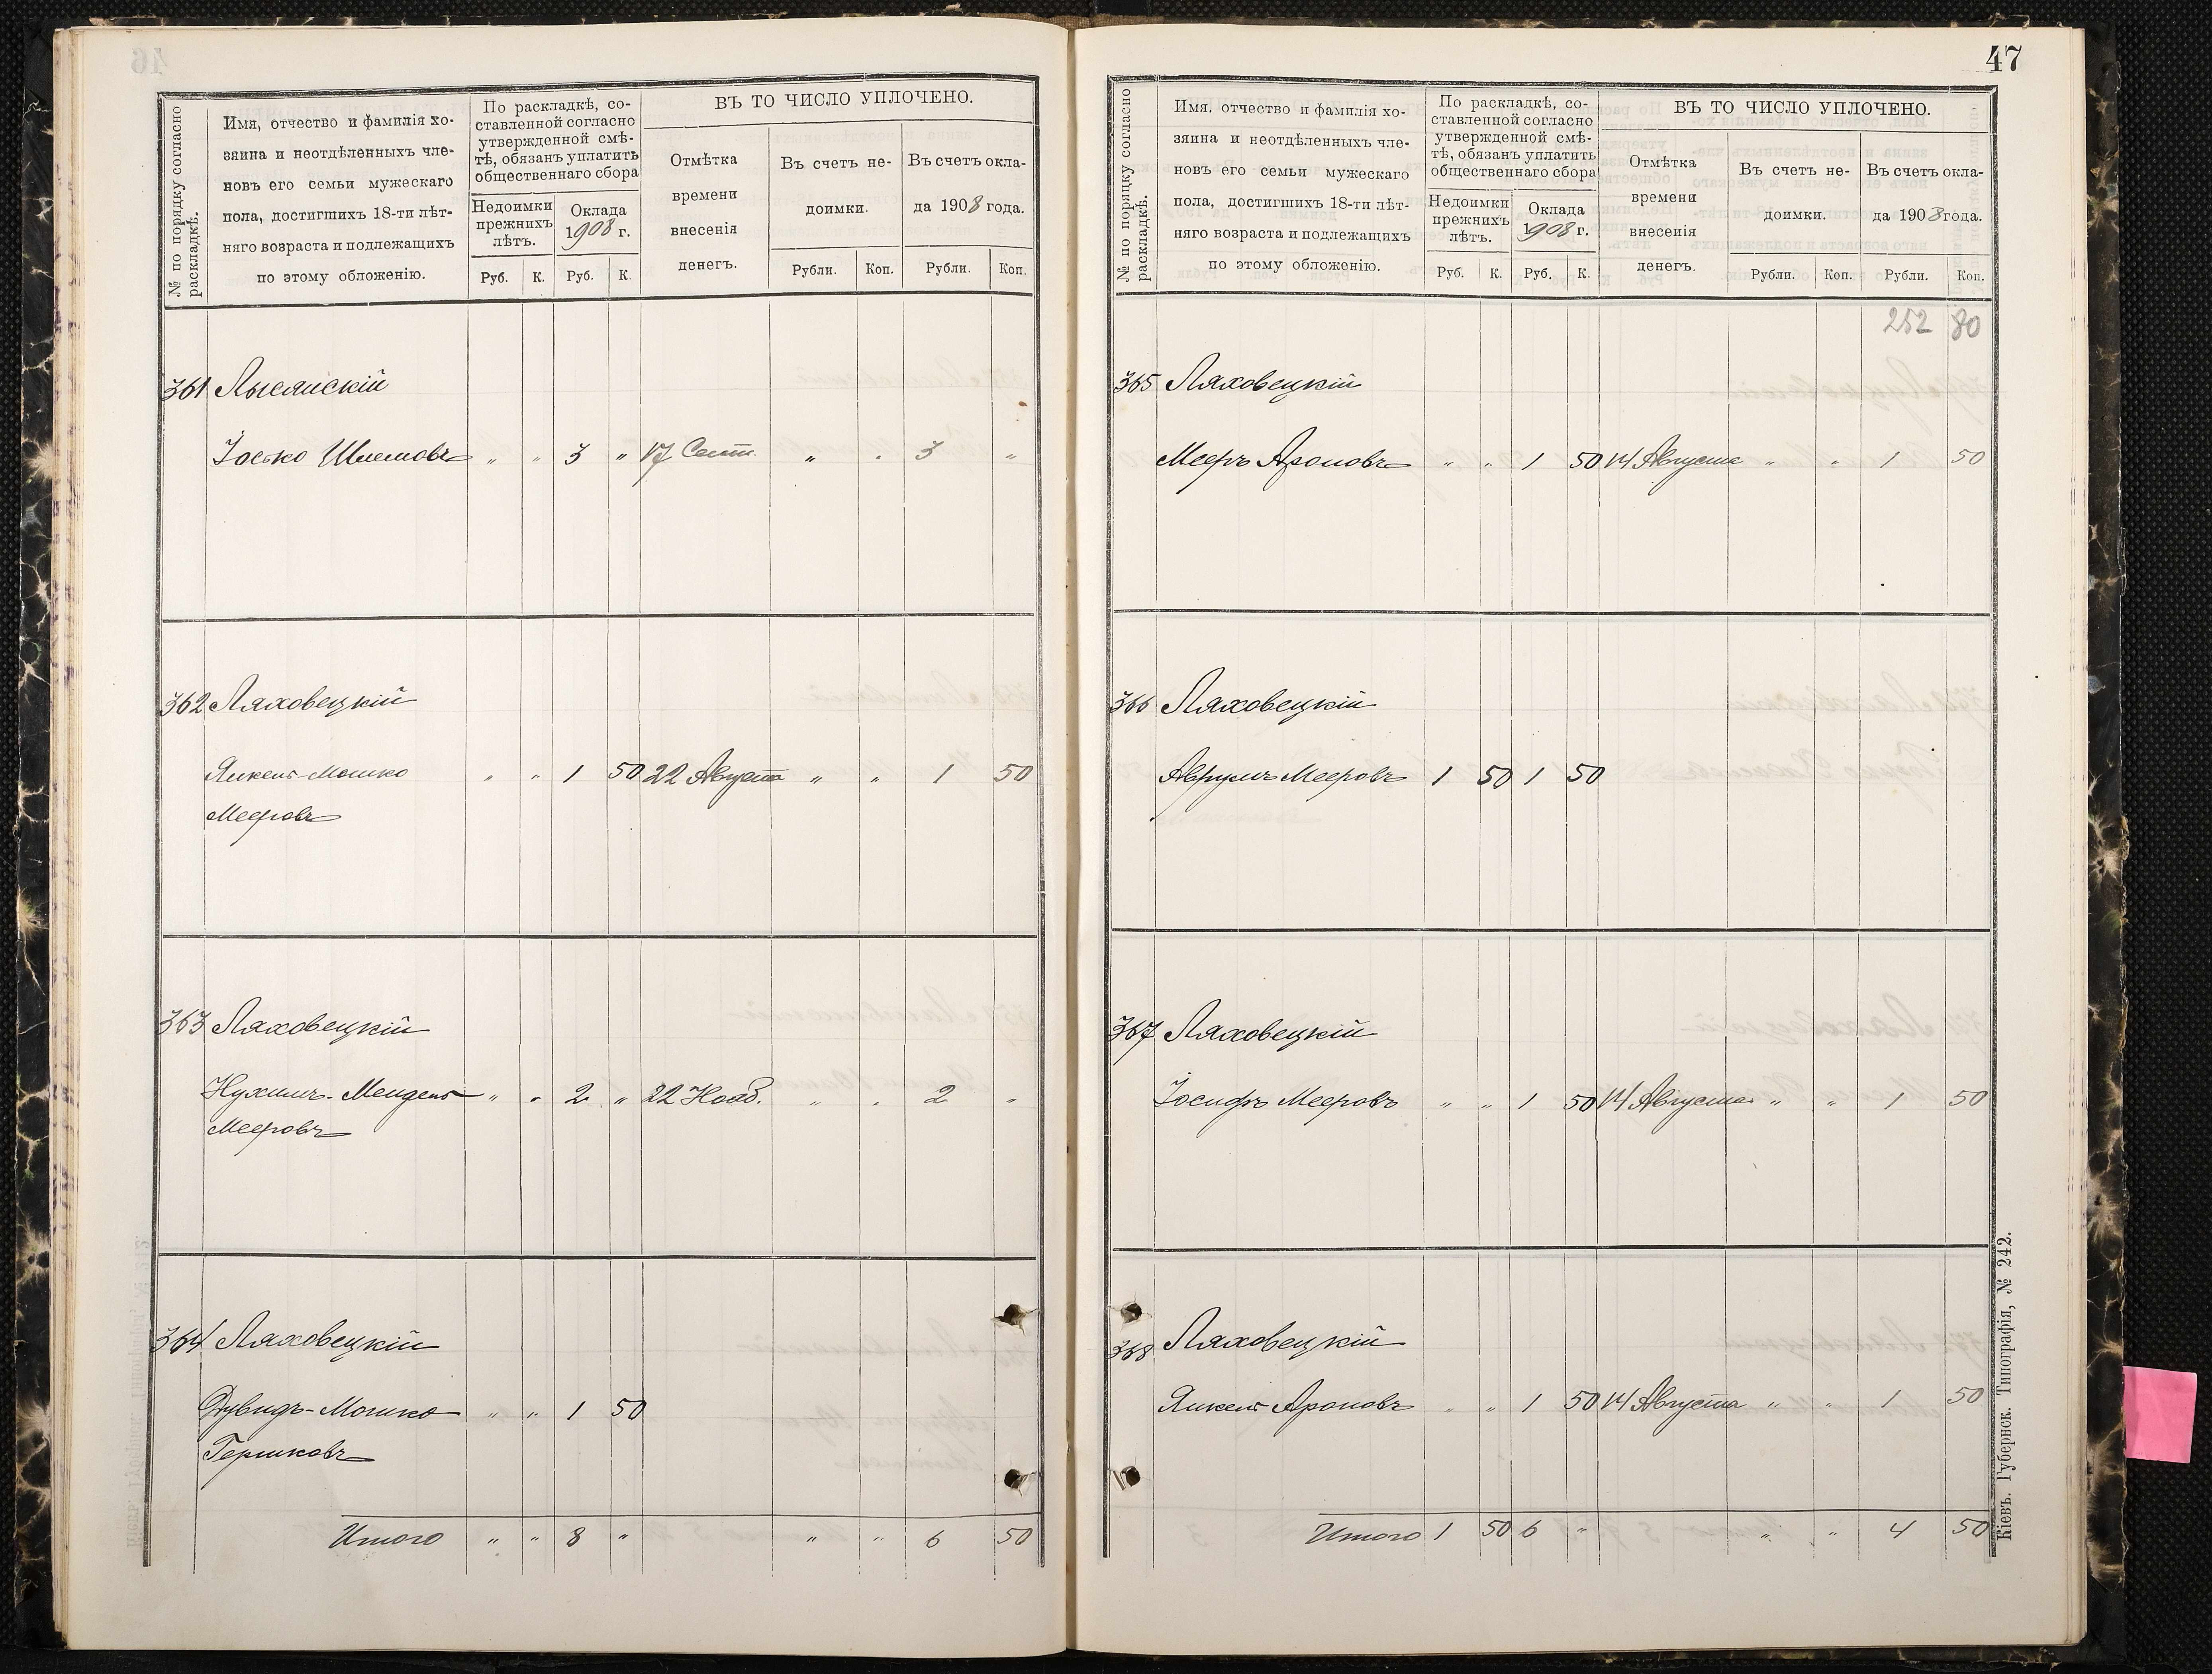 № по порядку согласно раскладкѣ.
Имя, отчество и фамилія хо-
зяина и неотдѣленныхъ чле-
новъ его семьи мужескаго
пола, достигшихъ 18-ти лѣт-
няго возраста и подлежащихъ
по этому обложенію.
По раскладкѣ, со-
ставленной согласно
утвержденной смѣ-
тѣ, обязанъ уплатить
общественнаго сбора
Недоимки прежнихъ лѣтъ.
Оклада 1908 г.
Руб. К. Руб. К.
ВЪ ТО ЧИСЛО УПЛОЧЕНО.
Отмѣтка
времени
внесенія
денегъ.
Въ счетъ не-
доимки.
Въ счетъ окла-
да 1908 года.
Рубли. Коп. Рубли. Коп.
361 Лысянскій
Іосько Шлемовъ " " 3 " 17 Сент. " " 3 "
362 Ляховецкій
Янкель-Мошко " " 1 50 22 Августа " " 1 50
Мееровъ
363 Ляховецкій
Нухимъ-Мендель " " 2 " 22 Нояб. " " 2 "
Мееровъ
364 Ляховецкій
Дувидъ-Мошко " " 1 50
Гершковъ
Итого " " 8 " " " 6 50
47
№ по порядку согласно раскладкѣ.
Имя, отчество и фамилія хо-
зяина и неотдѣленныхъ чле-
новъ его семьи мужескаго
пола, достигшихъ 18-ти лѣт-
няго возраста и подлежащихъ
по этому обложенію.
По раскладкѣ, со-
ставленной согласно
утвержденной смѣ-
тѣ, обязанъ уплатить
общественнаго сбора
Недоимки прежнихъ лѣтъ.
Оклада 1908 г.
Руб. К. Руб. К.
ВЪ ТО ЧИСЛО УПЛОЧЕНО.
Отмѣтка
времени
внесенія
денегъ.
Въ счетъ не-
доимки.
Въ счетъ окла-
да 1908 года.
Рубли. Коп. Рубли. Коп.
252 80
365 Ляховецкій
Мееръ Ароновъ " " 1 50 14 Августа " " 1 50
366 Ляховецкій
Аврумъ Мееровъ 1 50 1 50
367 Ляховецкій
Іосифъ Мееровъ " " 1 50 14 Августа " " 1 50
368 Ляховецкій
Янкель Ароновъ " " 1 50 14 Августа " " 1 50
Итого 1 50 6 " " " 4 50
Кіевъ. Губернск. Типографія, № 242.